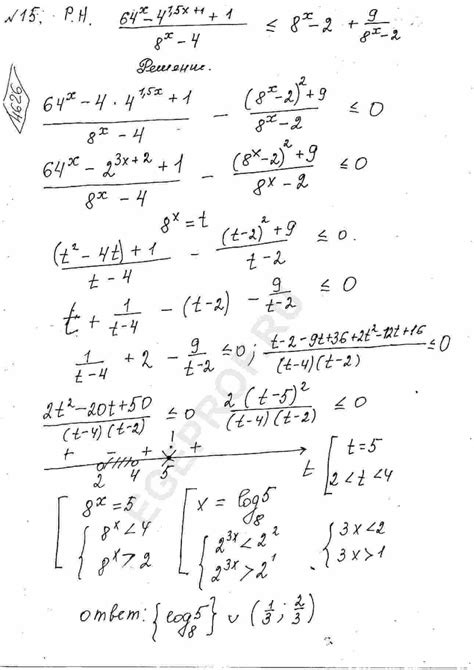 №15. Р.Н. (64^x − 4^(1,5x+1) + 1)/(8^x − 4) ≤ 8^x − 2 + 9/(8^x − 2)
Решение.
4626
(64^x − 4 · 4^(1,5x) + 1)/(8^x − 4) − ((8^x − 2)^2 + 9)/(8^x − 2) ≤ 0
(64^x − 2^(3x+2) + 1)/(8^x − 4) − ((8^x − 2)^2 + 9)/(8^x − 2) ≤ 0
8^x = t
((t^2 − 4t) + 1)/(t − 4) − ((t − 2)^2 + 9)/(t − 2) ≤ 0.
t + 1/(t − 4) − (t − 2) − 9/(t − 2) ≤ 0
1/(t − 4) + 2 − 9/(t − 2) ≤ 0; (t − 2 − 9t + 36 + 2t^2 − 12t + 16)/((t − 4)(t − 2)) ≤ 0
(2t^2 − 20t + 50)/((t − 4)(t − 2)) ≤ 0 2(t − 5)^2/((t − 4)(t − 2)) ≤ 0
+ − + ! +
2 4 5 t
[ t = 5
2 < t < 4
[ 8^x = 5
{ 8^x < 4
8^x > 2
[ x = log_8 5
{ 2^(3x) < 2^2
2^(3x) > 2^1
{ 3x < 2
3x > 1
ответ: {log_8 5} ∪ (1/3; 2/3)
EGEPROF.RU